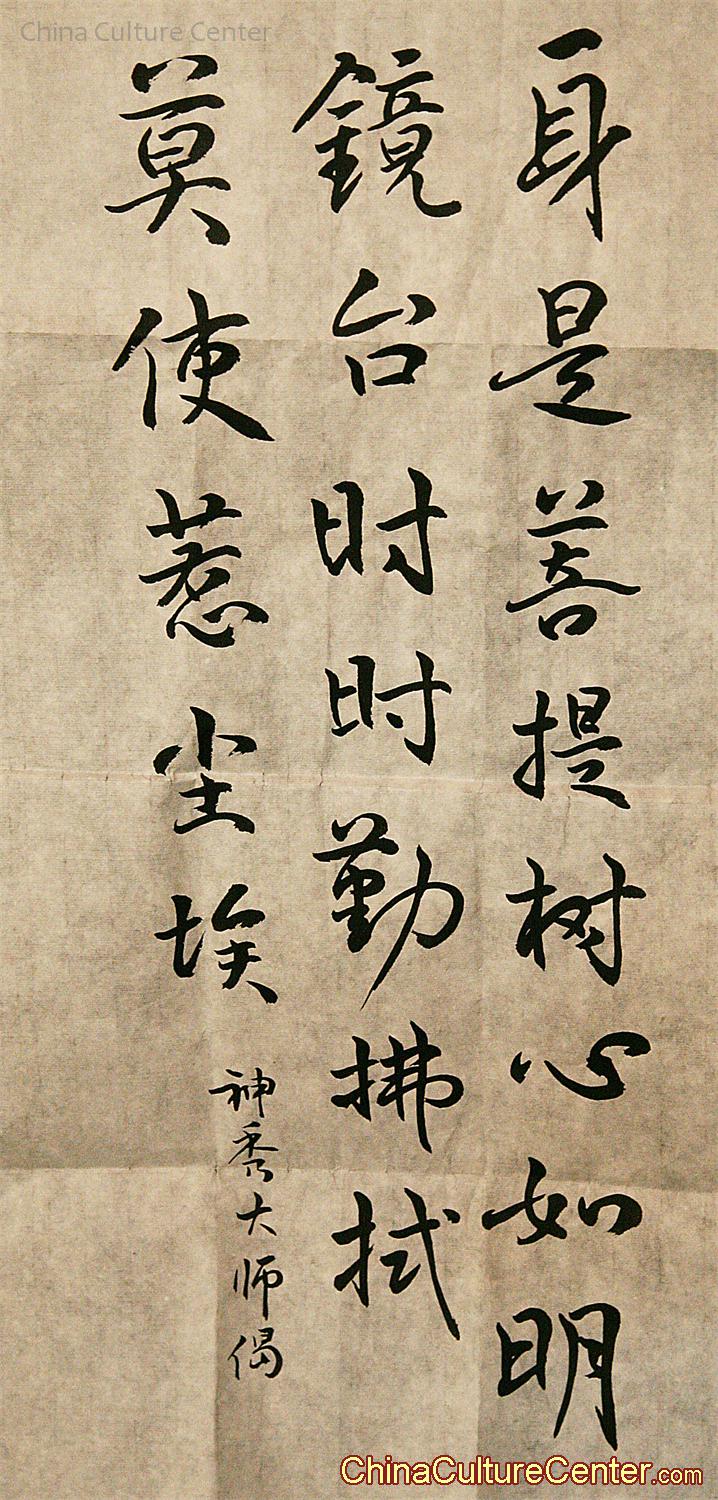 China Culture Center
身是菩提树心如明
镜台时时勤拂拭
莫使惹尘埃
神秀大师偈
ChinaCultureCenter.com